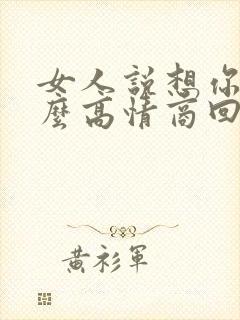 女人說想你
麼高情商回
黃衫軍